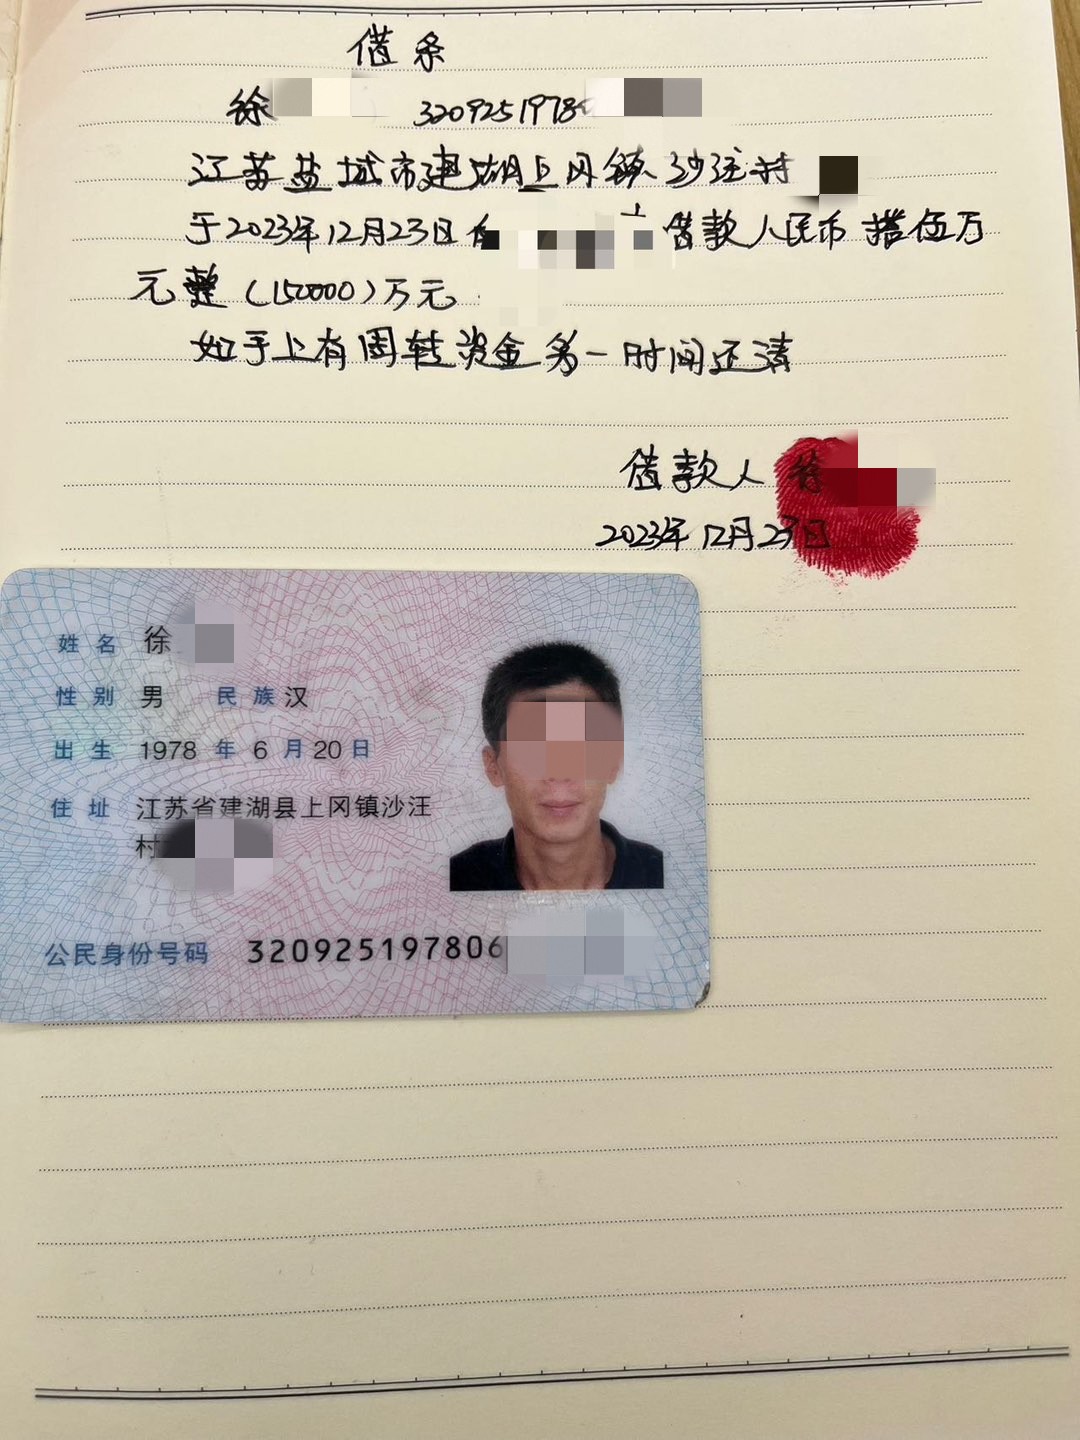 借条
徐 3209251978
江苏盐城市建湖上冈镇沙汪村
于2023年12月23日 借款人民币 拾伍万
元整（150000）万元
如手上有周转资金第一时间还清
借款人 徐
2023年12月23日
姓名 徐
性别 男 民族 汉
出生 1978 年 6 月 20 日
住址 江苏省建湖县上冈镇沙汪
村
公民身份号码 320925197806